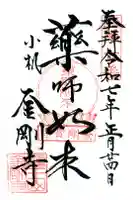 奉拝令和七年正月廿四日
薬師如来
小机
金剛寺